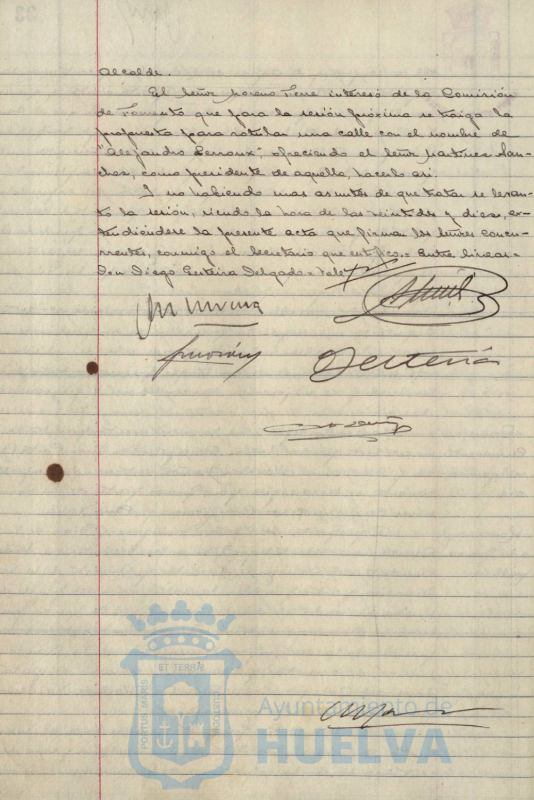 Alcalde.
El Señor Moreno Tene interesó de la Comisión
de Fomento que para la sesión próxima se traiga la
propuesta para rotular una calle con el nombre de
"Alejandro Lerroux", ofreciendo el señor Martinez San-
chez, como presidente de aquella, hacerlo así.
Y no habiendo mas asuntos de que tratar se levan-
tó la sesión, siendo la hora de las veintidos y diez, ex-
tendiéndose la presente acta que firman los señores concu-
rrentes, conmigo el Secretario que certifico.= Entre lineas=
Don Diego Delgado= Vale
ET TERRÆ
PORTUS MARIS
CUSTODIA
Ayuntamiento de
HUELVA